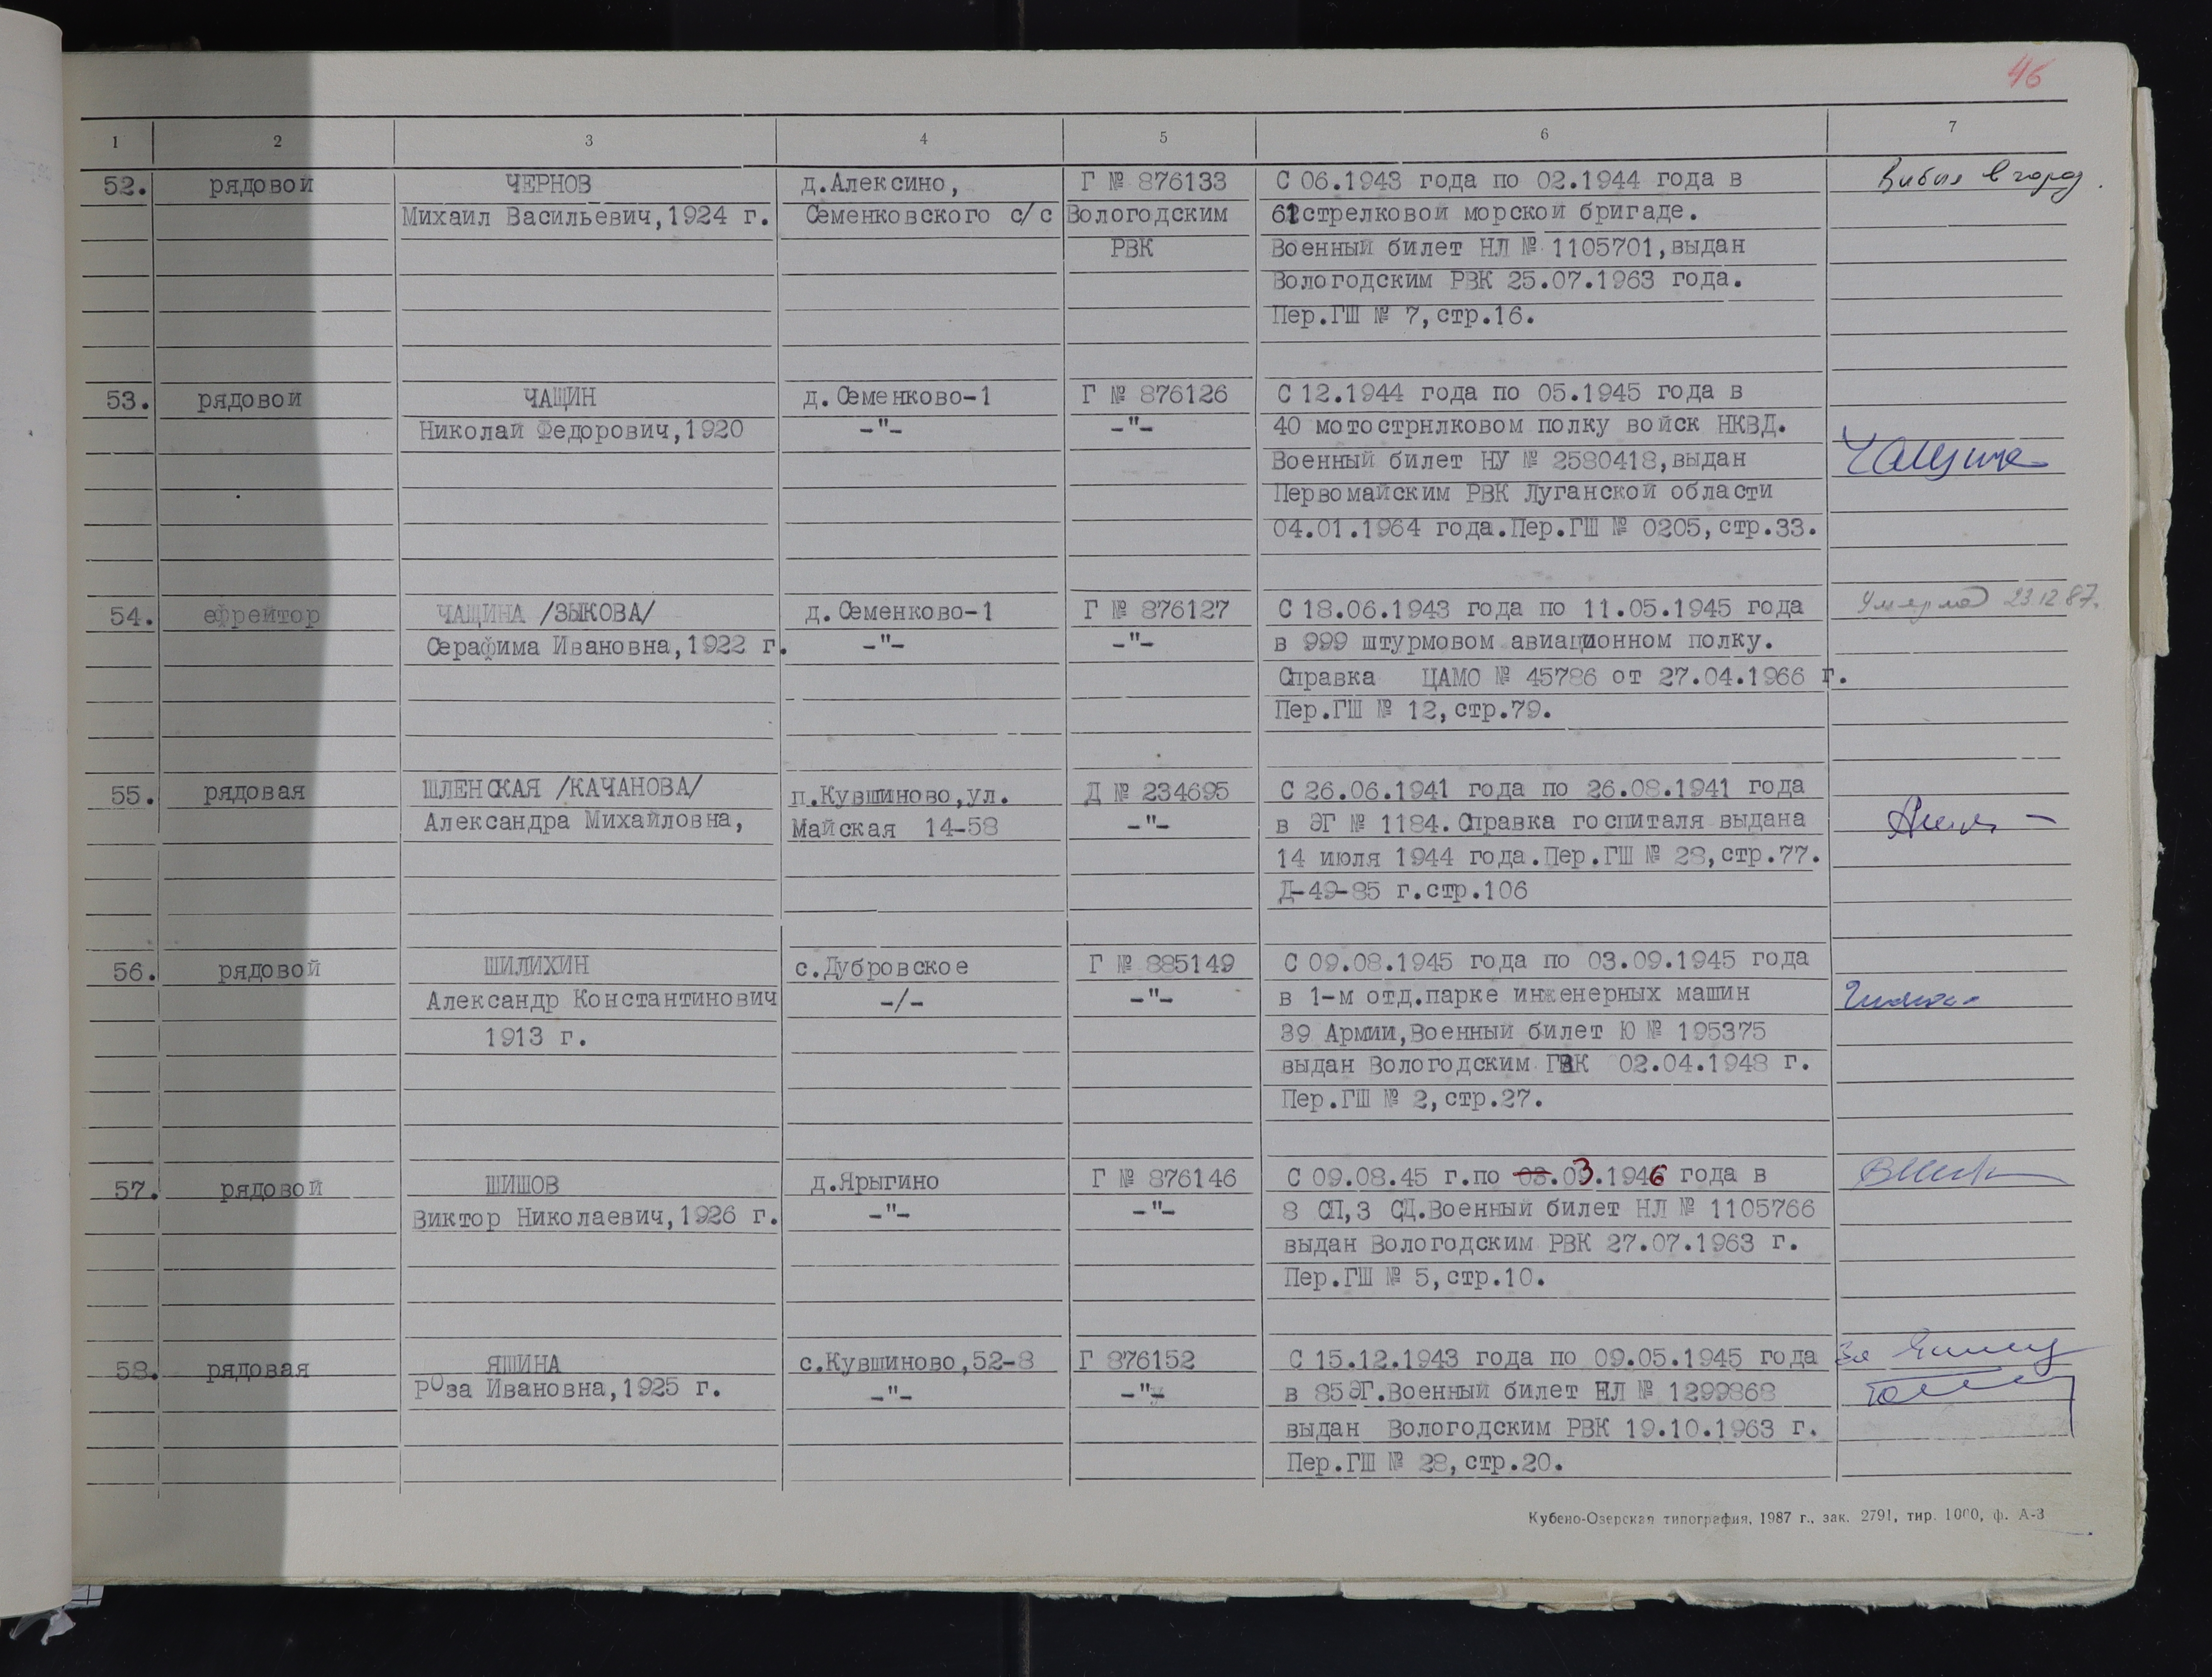 46
1 2 3 4 5 6 7
52. рядовой ЧЕРНОВ д.Алексино, Г № 876133 С 06.1943 года по 02.1944 года в Выбыл в город.
Михаил Васильевич,1924 г. Семенковского с/с Вологодским 61стрелковой морской бригаде.
РВК Военный билет НЛ № 1105701,выдан
Вологодским РВК 25.07.1963 года.
Пер.ГШ № 7,стр.16.
53. рядовой ЧАЩИН д.Семенково-1 Г № 876126 С 12.1944 года по 05.1945 года в
Николай Федорович,1920 -"- -"- 40 мотострнлковом полку войск НКВД.
Военный билет НУ № 2580418,выдан
Первомайским РВК Луганской области
04.01.1964 года.Пер.ГШ № 0205,стр.33.
54. ефрейтор ЧАЩИНА /ЗЫКОВА/ д.Семенково-1 Г № 876127 С 18.06.1943 года по 11.05.1945 года Умерла 23.12.87.
Серафима Ивановна,1922 г. -"- -"- в 999 штурмовом авиационном полку.
Справка ЦАМО № 45786 от 27.04.1966 г.
Пер.ГШ № 12,стр.79.
55. рядовая ШЛЕНСКАЯ /КАЧАНОВА/ п.Кувшиново,ул. Д № 234695 С 26.06.1941 года по 26.08.1941 года
Александра Михайловна, Майская 14-58 -"- в ЭГ № 1184.Справка госпиталя выдана
14 июля 1944 года.Пер.ГШ № 28,стр.77.
Д-49-85 г.стр.106
56. рядовой ШИЛИХИН с.Дубровское Г № 885149 С 09.08.1945 года по 03.09.1945 года
Александр Константинович -/- -"- в 1-м отд.парке инженерных машин
1913 г. 39 Армии,Военный билет Ю № 195375
выдан Вологодским ГВК 02.04.1948 г.
Пер.ГШ № 2,стр.27.
57. рядовой ШИШОВ д.Ярыгино Г № 876146 С 09.08.45 г.по 03.03.1946 года в
Виктор Николаевич,1926 г. -"- -"- 8 СП,3 СД.Военный билет НЛ № 1105766
выдан Вологодским РВК 27.07.1963 г.
Пер.ГШ № 5,стр.10.
58. рядовая ЯШИНА с.Кувшиново,52-8 Г 876152 С 15.12.1943 года по 09.05.1945 года За
Роза Ивановна,1925 г. -"- -"- в 85 ЭГ.Военный билет НЛ № 1299868
выдан Вологодским РВК 19.10.1963 г.
Пер.ГШ № 28,стр.20.
Кубено-Озерская типография, 1987 г., зак. 2791, тир. 1000, ф. А-3